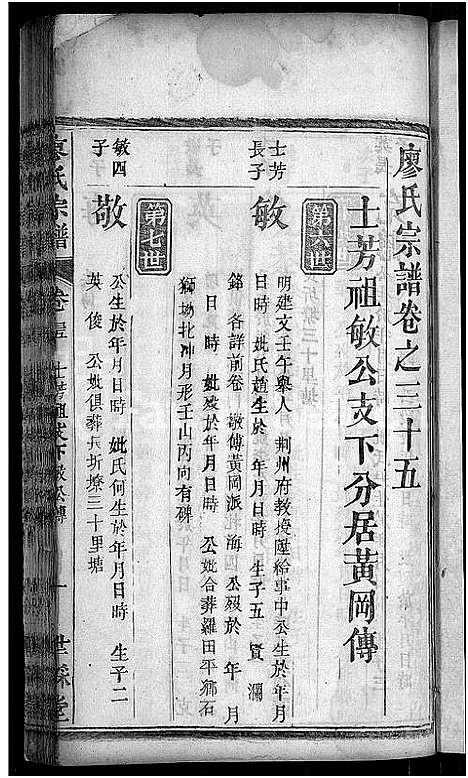 廖氏宗譜卷之三十五
士芳祖敏公支下分居黃岡傳
第六世
士芳
長子
敏
明建文壬午舉人 荆州府教授歷給事中公生於年月
日時 妣氏趙生於 年月日時 生子五 賢 瀾
銘 各詳前卷 敬傅黃岡派 海四公歿於 年 月
日時 妣歿於年月日時 公妣合葬羅田平獅石
獅坳北冲月形壬山丙向有碑
第七世
敏四
子
敬
公生於年月日時 妣氏何生於年月日時 生子二
英 俊 公妣俱葬長圻墩三十里塘
氏宗譜
卷三十五
士芳祖支下敬公傳
一
堂